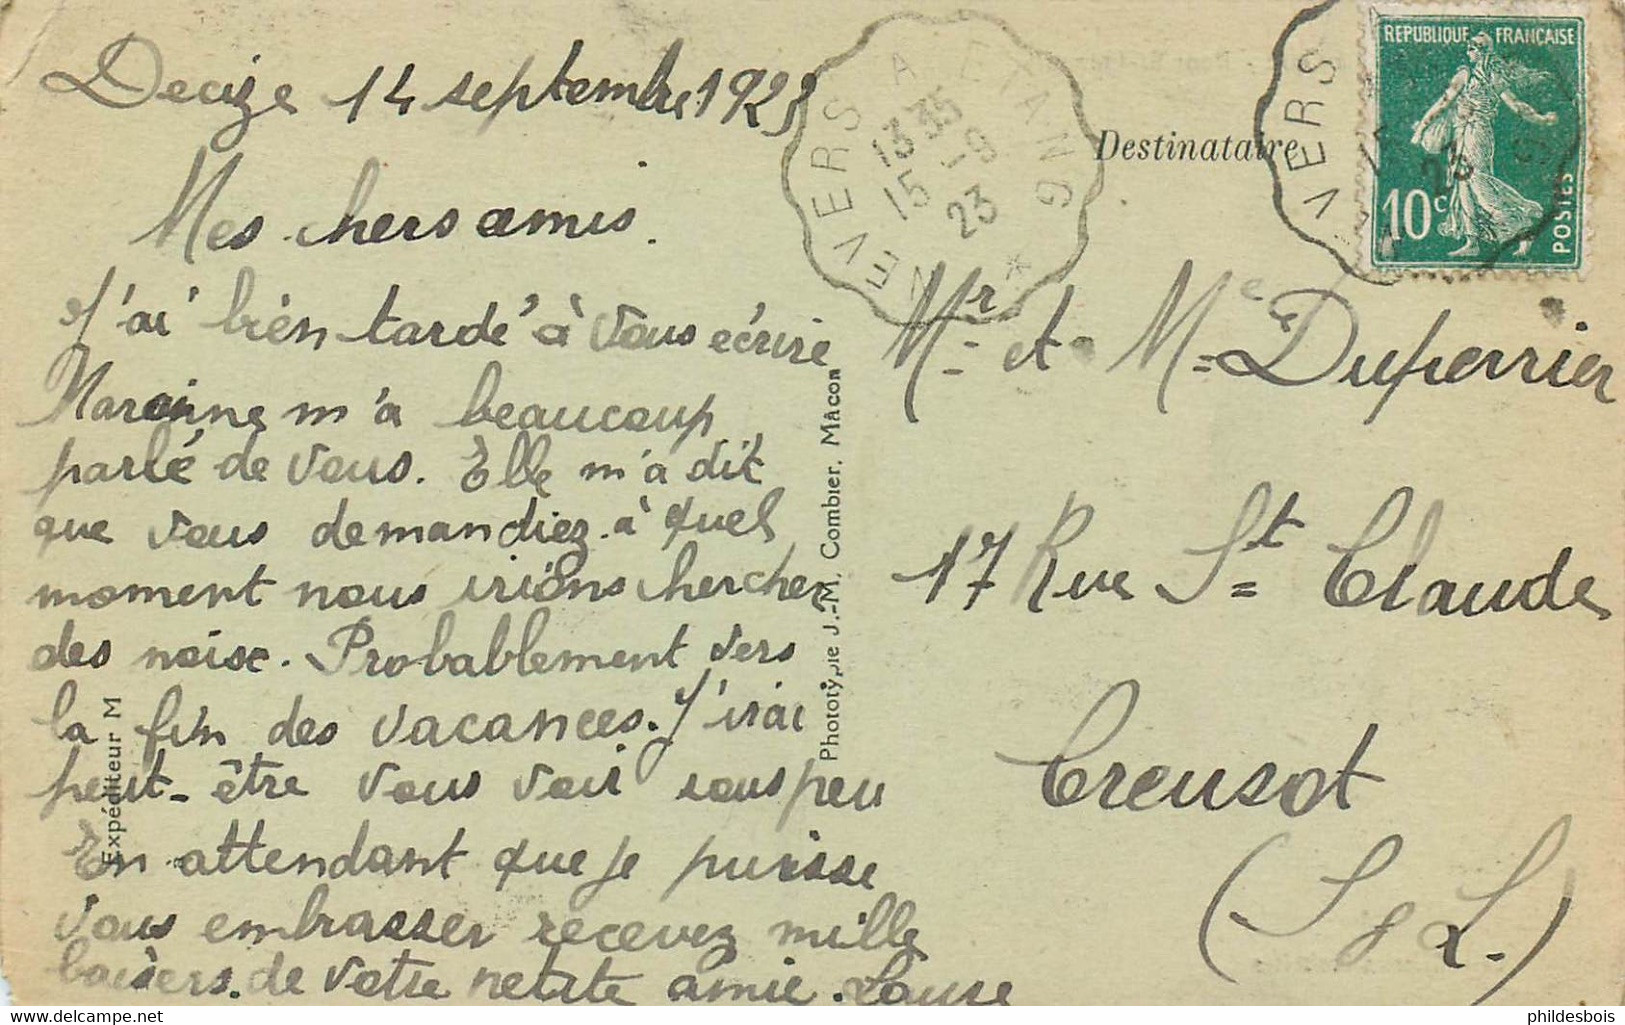 Decize 14 septembre 1923
Mes chers amis.
J'ai bien tardé à vous écrire
Marraine m'a beaucoup
parlé de vous. Elle m'a dit
que vous demandiez à quel
moment nous irions chercher
des noise. Probablement vers
la fin des vacances. J'irai
peut-être vous voir sous peu
En attendant que je puisse
vous embrasser recevez mille
baisers de votre petite amie. Laure
Expéditeur M
Phototypie J.-M. Combier, Mâcon
NEVERS A ETANG
13 35
15 - 9
23
Destinataire
REPUBLIQUE FRANÇAISE
10c
POSTES
VERS
23
Mr et Me Duperrier
17 Rue St Claude
Creusot
(S & L.)
delcampe.net
phildesbois